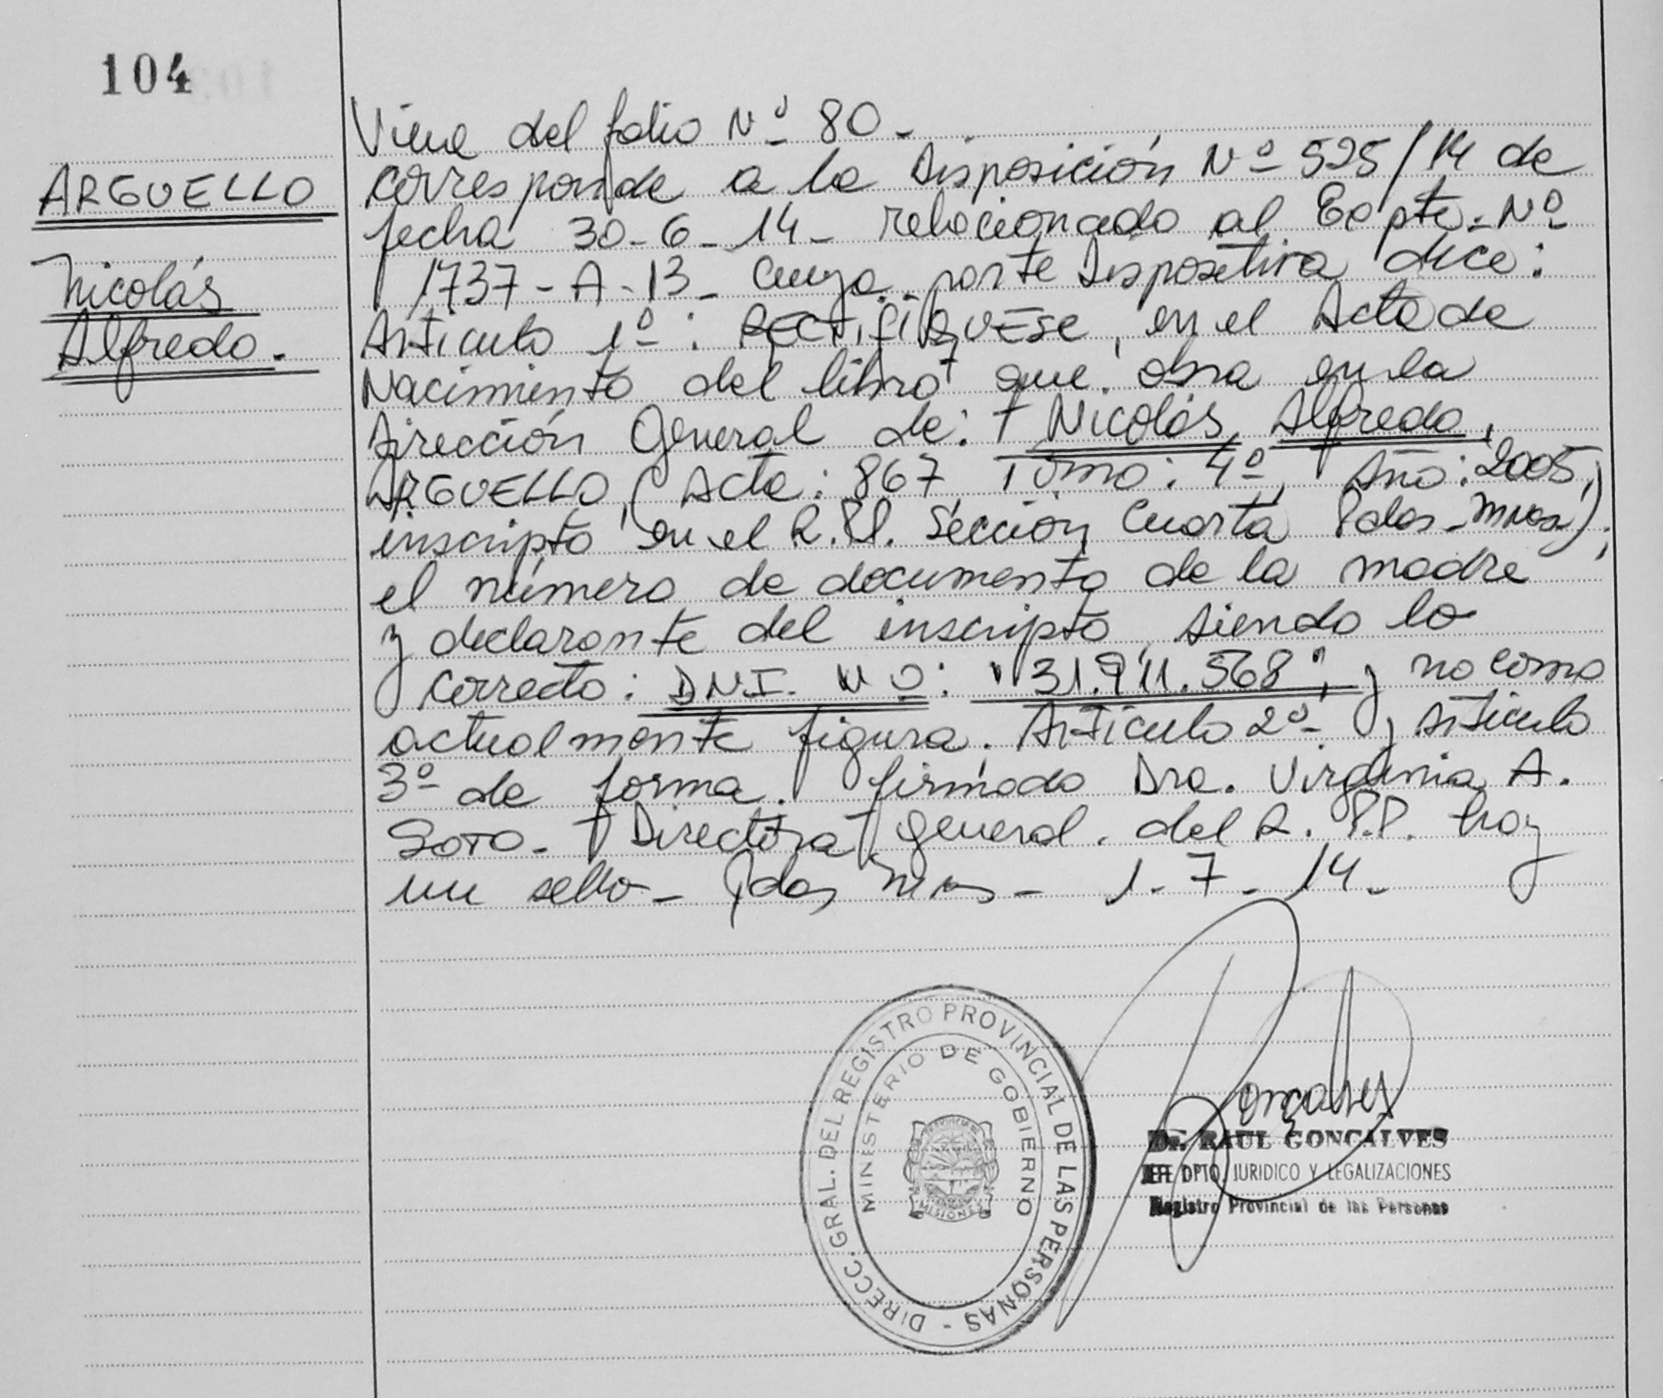 104
ARGUELLO
Nicolás
Alfredo.
Viene del folio Nº 80.
corresponde a la Disposición Nº 525/14 de
fecha 30-6-14- relacionado al Expte. Nº
1737-A-13- cuya parte Dispositiva dice:
Artículo 1º: RECTIFIQUESE, en el Acta de
Nacimiento del libro que obra en la
Dirección General de: Nicolás Alfredo,
ARGUELLO, (Acta: 867, Tomo: 4º, Año: 2005,
inscripto en el R.P.P. Sección Cuarta Pdas-Mnes),
el número de documento de la madre
y declarante del inscripto, siendo lo
correcto: DNI. Nº: "31.911.568", y no como
actualmente figura. Artículo 2º y Artículo
3º de forma. firmado Dra. Virginia A.
SOTO- Directora general. del R.P.P. hay
un sello- Pdas Mnes- 1-7-14-
DIRECC. GRAL. DEL REGISTRO PROVINCIAL DE LAS PERSONAS -
MINISTERIO DE GOBIERNO
MISIONES
Goncalves
Dr. RAUL GONCALVES
JEFE DPTO. JURIDICO Y LEGALIZACIONES
Registro Provincial de las Personas